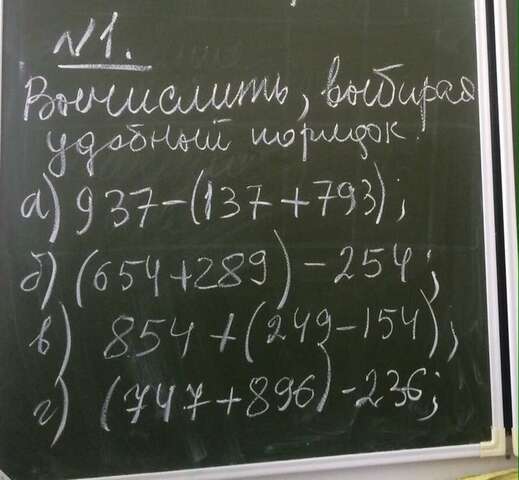 №1.
Вычислить, выбирая
удобный порядок.
а) 937-(137+793);
б) (654+289)-254;
в) 854+(249-154);
г) (747+896)-236;